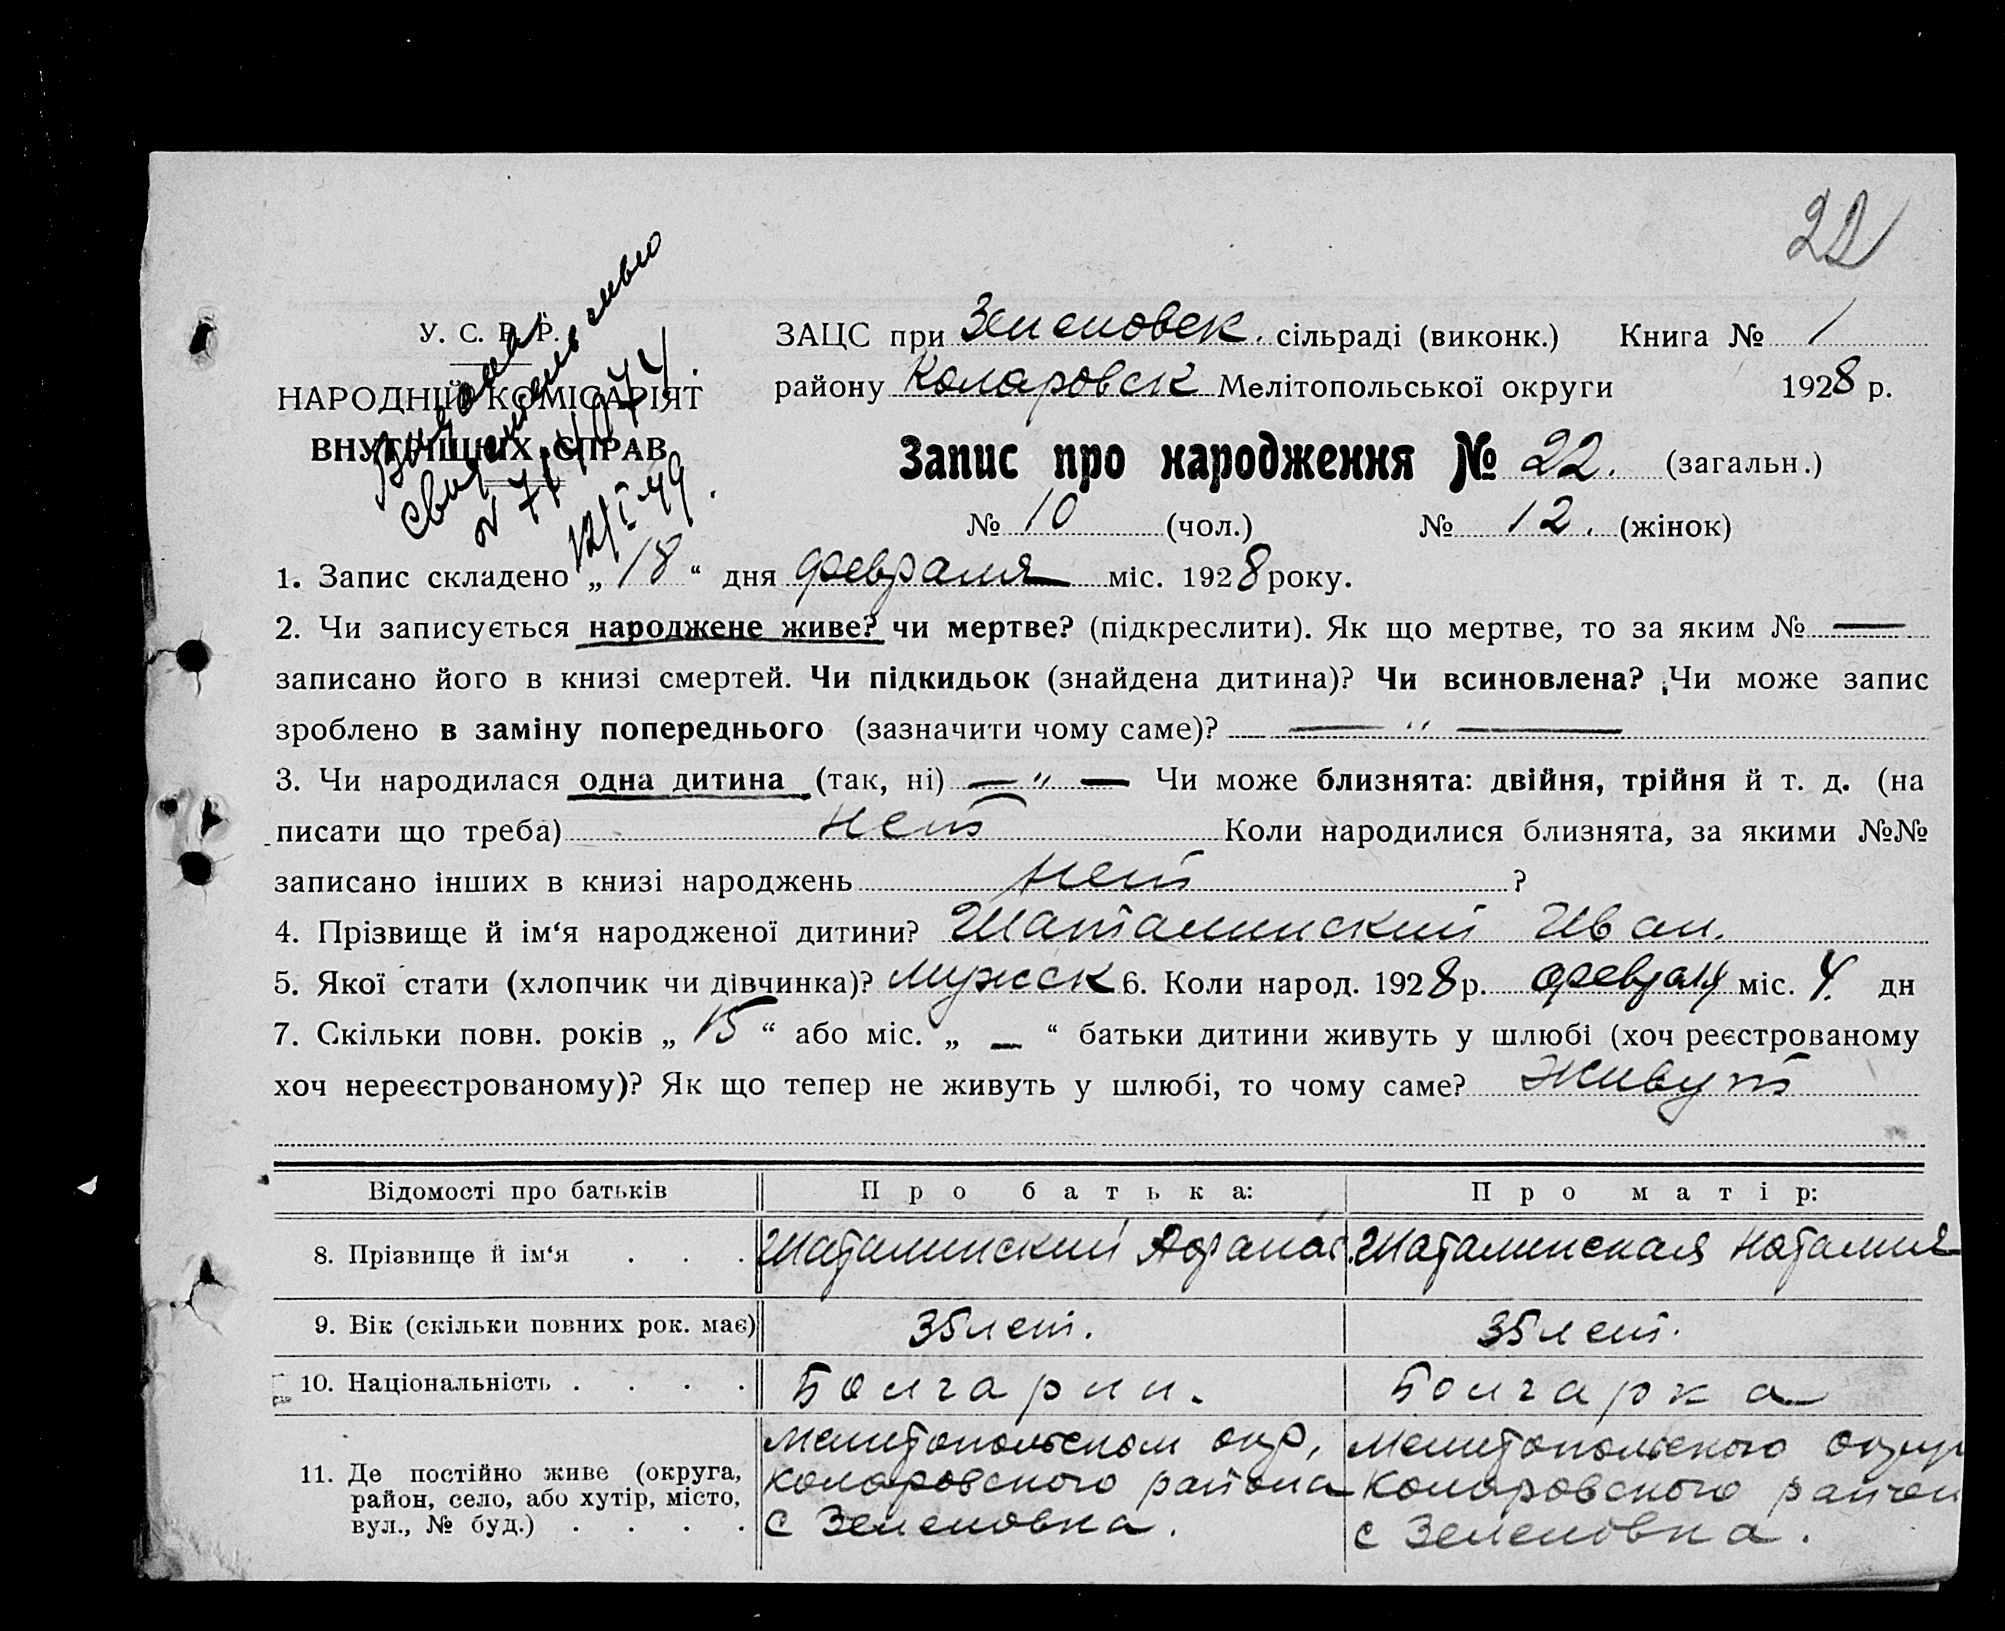 22
У. С. Р. Р.
НАРОДНІЙ КОМІСАРІЯТ
ВНУТРІШНІХ СПРАВ
Выдано
свидетельство
12/I-49.
ЗАЦС при Зеленовск. сільраді (виконк.) Книга № 1
району Коларовск Мелітопольської округи 1928 р.
Запис про народження № 22. (загальн.)
№ 10 (чол.) № 12. (жінок)
1. Запис складено „ 18 “ дня февраля міс. 1928 року.
2. Чи записується народжене живе? чи мертве? (підкреслити). Як що мертве, то за яким № —
записано його в книзі смертей. Чи підкидьок (знайдена дитина)? Чи всиновлена? Чи може запис
зроблено в заміну попереднього (зазначити чому саме)? — " —
3. Чи народилася одна дитина (так, ні) — " — Чи може близнята: двійня, трійня й т. д. (на
писати що треба) нет Коли народилися близнята, за якими №№
записано інших в книзі народжень нет ?
4. Прізвище й ім‘я народженої дитини? Шаталинский Иван.
5. Якої стати (хлопчик чи дівчинка)? Мужск 6. Коли народ. 1928 р. февраля міс. 4. дн
7. Скільки повн. років „ 15 “ або міс. „ — “ батьки дитини живуть у шлюбі (хоч реєстрованому
хоч нереєстрованому)? Як що тепер не живуть у шлюбі, то чому саме? Живут
Відомості про батьків Про батька: Про матір:
8. Прізвище й ім‘я . . . Шаталинский Афанас Шаталинская Наталия
9. Вік (скільки повних рок. має) 35 лет. 35 лет.
10. Національність . . . . Болгарин. Болгарка
Мелитопольском окр, Мелитопольского
11. Де постійно живе (округа, Коларовского района Коларовского район
район, село, або хутір, місто,
вул., № буд.) . . . . с Зеленовка. с Зеленовка.